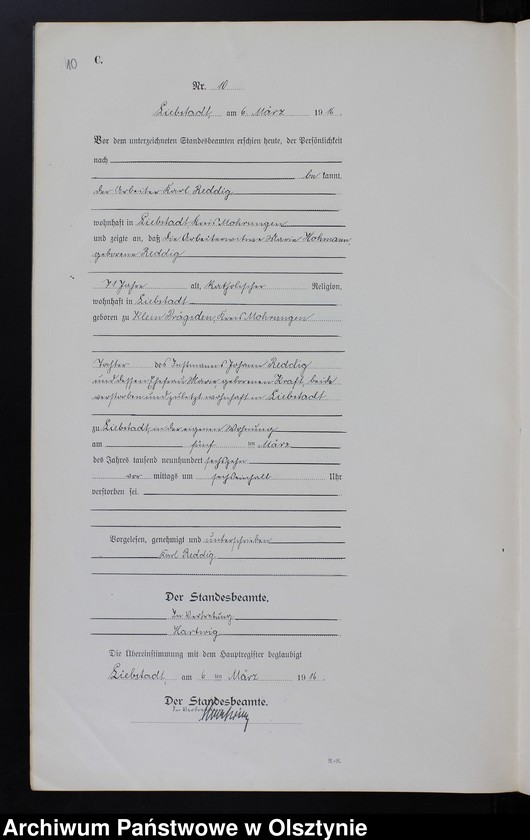 10
C.
Nr. 10
Liebstadt, am 6. März 1916.
Vor dem unterzeichneten Standesbeamten erschien heute, der Persönlichkeit
nach
be kannt,
der Arbeiter Karl Reddig
wohnhaft in Liebstadt Kreis Mohrungen
und zeigte an, daß die Arbeiterwitwe Marie Hohmann
geborene Reddig
71 Jahre alt, Katholischer Religion,
wohnhaft in Liebstadt
geboren zu Klein Prägsden, Kreis Mohrungen
Tochter des Instmanns Johann Reddig
und dessen Ehefrau Marie, geborenen Kraft, beide
verstorben und zuletzt wohnhaft in Liebstadt
zu Liebstadt, in der eigenen Wohnung
am fünf ten März
des Jahres tausend neunhundert sechszehn
vor mittags um sechseinhalb Uhr
verstorben sei.
Vorgelesen, genehmigt und unterschrieben
Karl Reddig
Der Standesbeamte.
In Vertretung
Hartwig
Die Übereinstimmung mit dem Hauptregister beglaubigt
Liebstadt, am 6 ten März 1916.
Der Standesbeamte.
In Vertretung
Hartwig
Archiwum Państwowe w Olsztynie